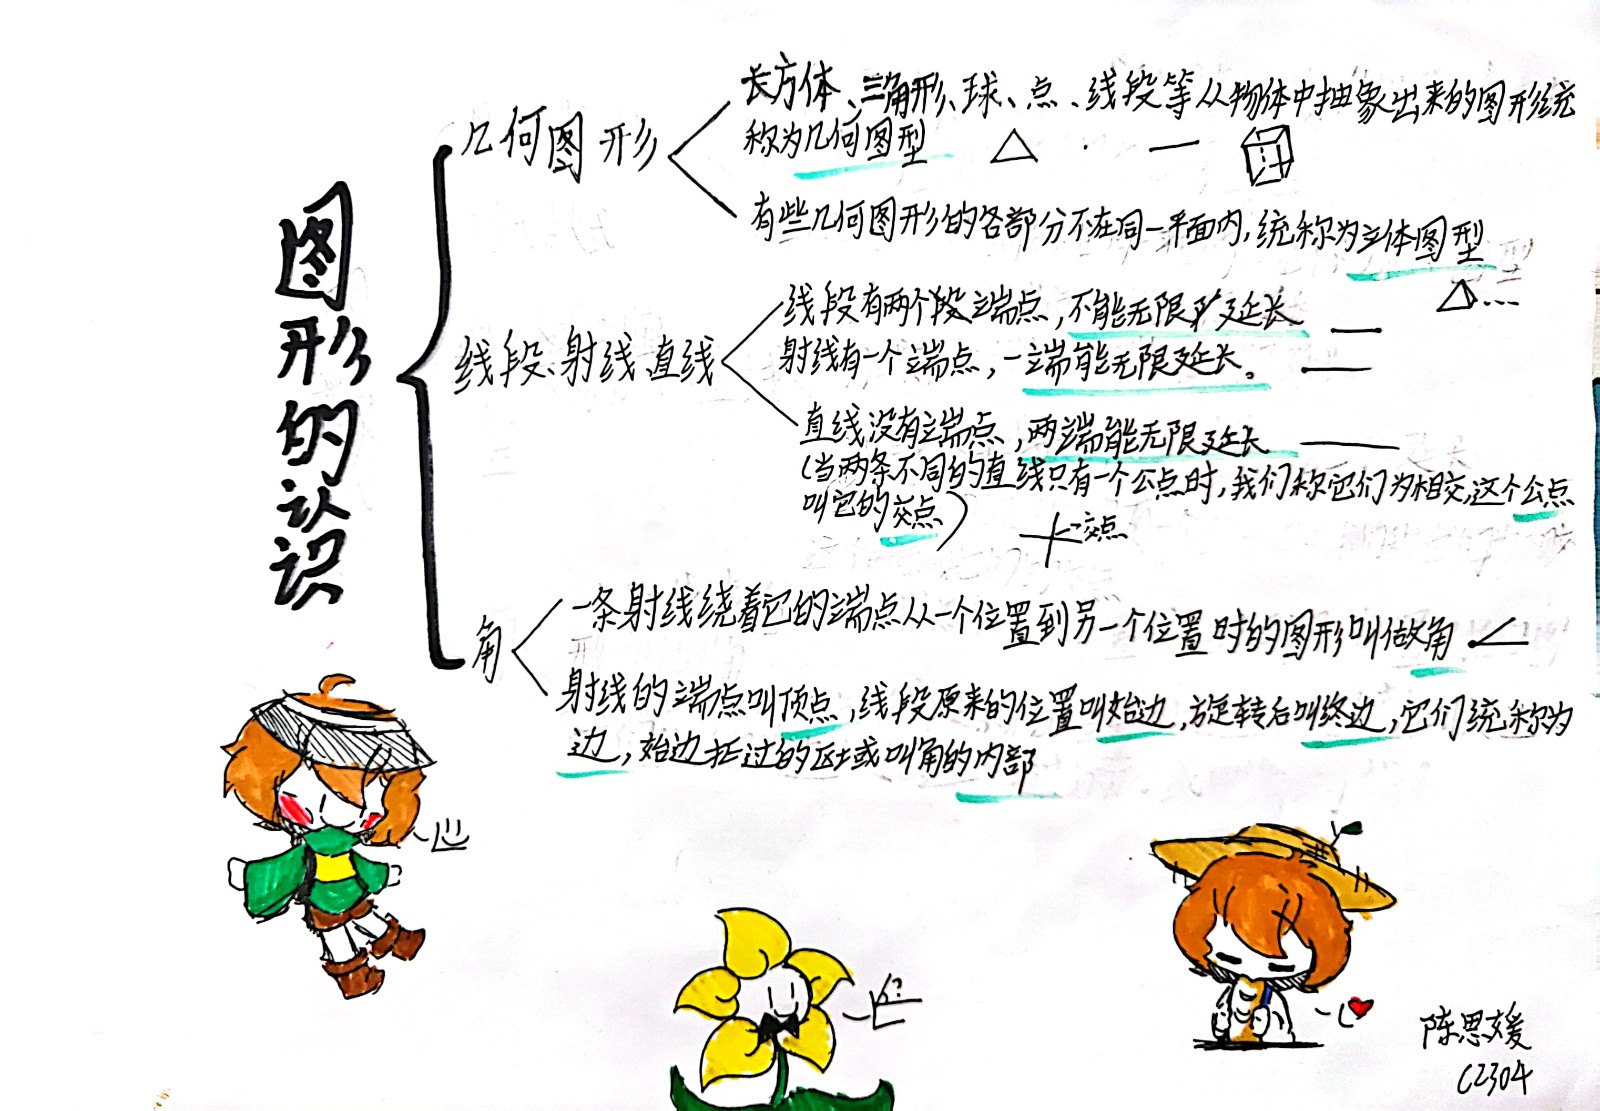 图形的认识
几何图形
长方体、三角形、球、点、线段等从物体中抽象出来的图形统
称为几何图型
有些几何图形的各部分不在同一平面内,统称为立体图型
线段、射线、直线
线段有两个段端点,不能无限延长
射线有一个端点,一端能无限延长。
直线没有端点,两端能无限延长
(当两条不同的直线只有一个公点时,我们称它们为相交,这个公点
叫它的交点)
交点
角
一条射线绕着它的端点从一个位置到另一个位置时的图形叫做角
射线的端点叫顶点,线段原来的位置叫始边,旋转后叫终边,它们统称为
边,始边扫过的区域叫角的内部
?
陈思媛
C2304